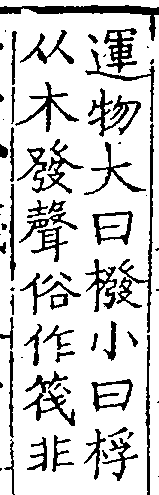 運物大曰橃小曰桴
从木發聲俗作筏非